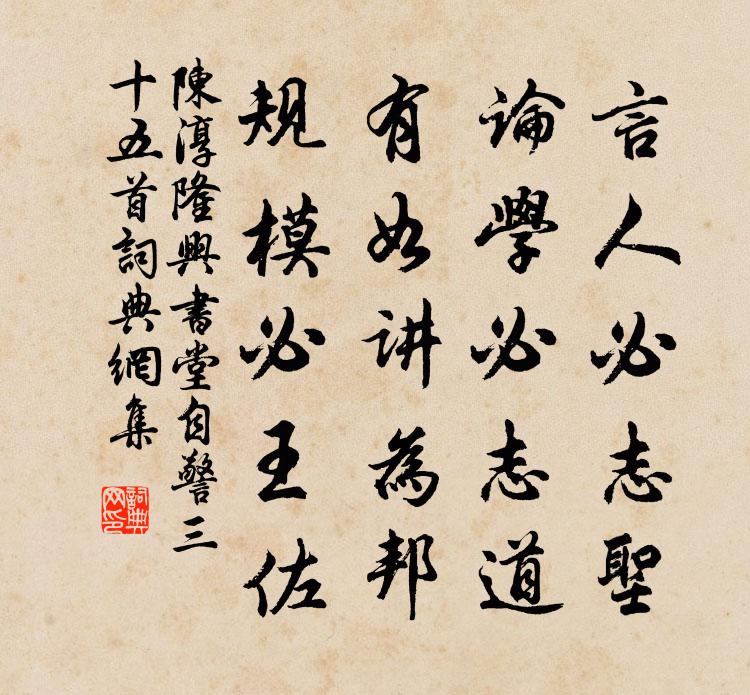 言人必志聖
論學必志道
有如讲為邦
规模必王佐
陳淳隆興書堂自警三
十五首詞典網集
詞典网印